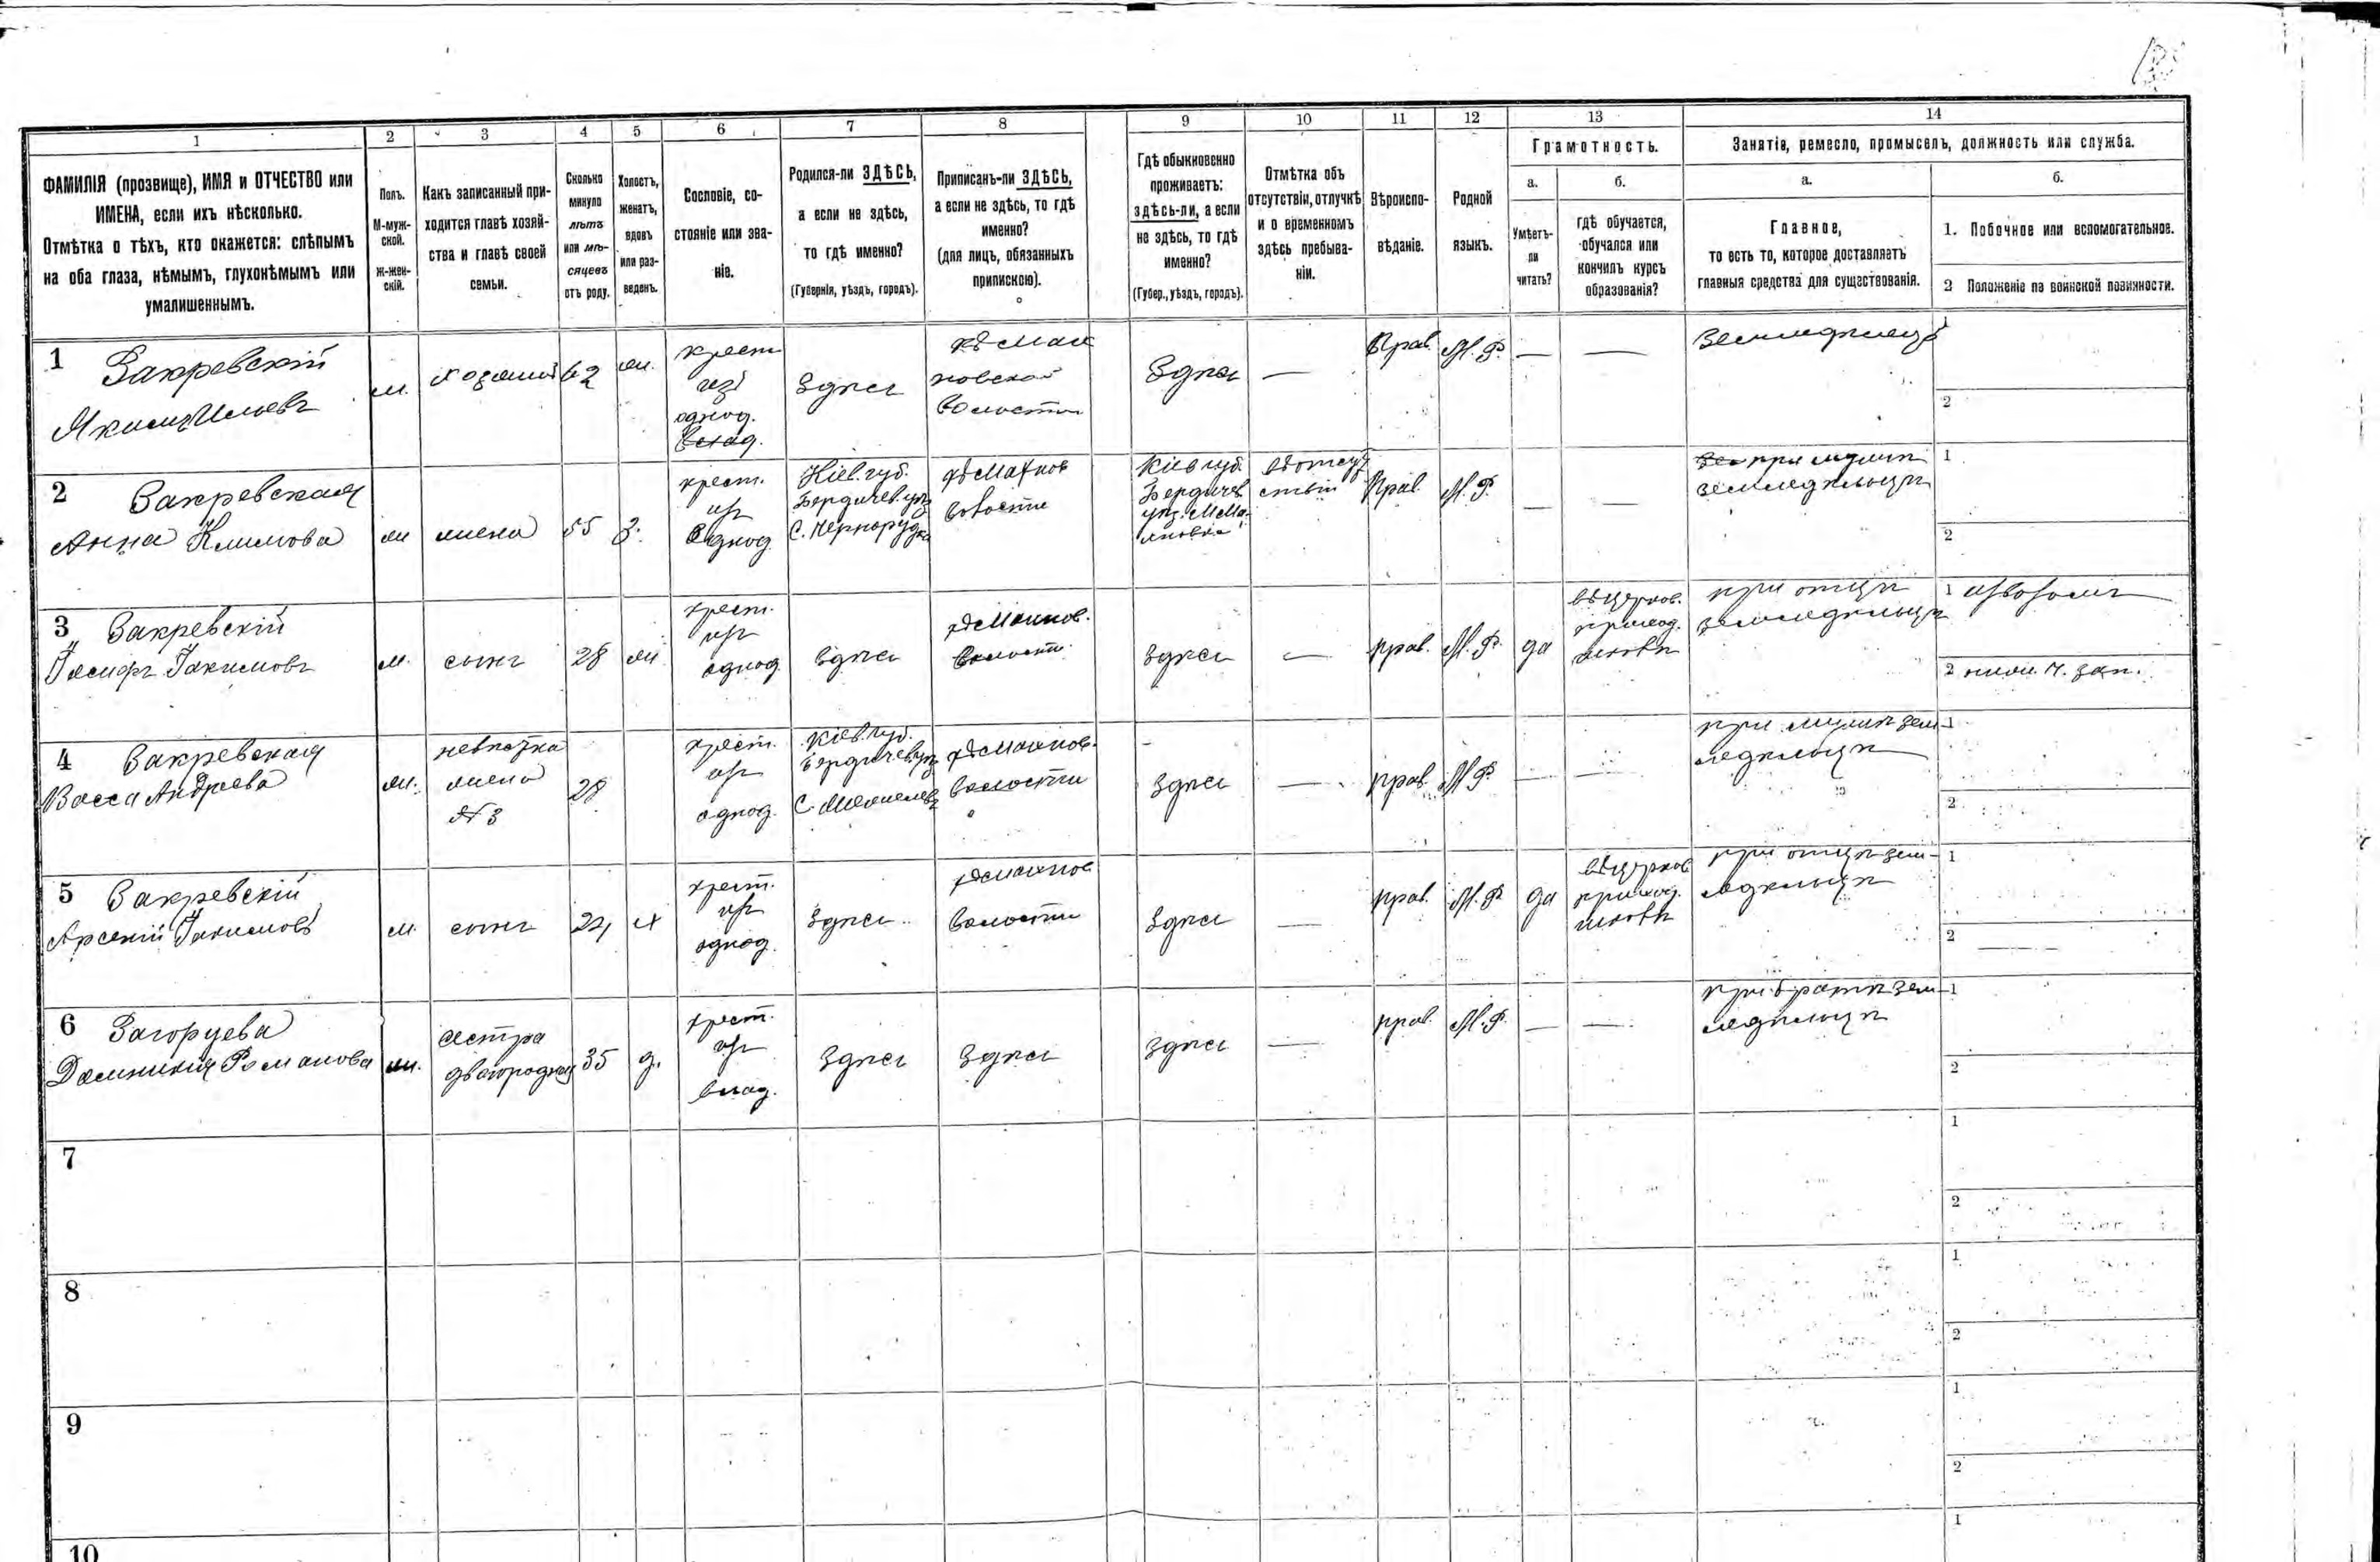 1
2
3
4
5
6
7
8
9
10
11
12
13
14
ФАМИЛІЯ (прозвище), ИМЯ и ОТЧЕСТВО или
ИМЕНА, если ихъ нѣсколько.
Отмѣтка о тѣхъ, кто окажется: слѣпымъ
на оба глаза, нѣмымъ, глухонѣмымъ или
умалишеннымъ.
Полъ.
М-муж-
ской.
Ж-жен-
скій.
Какъ записанный при-
ходится главѣ хозяй-
ства и главѣ своей
семьи.
Сколько
минуло
лѣтъ
или мѣ-
сяцевъ
отъ роду.
Холостъ,
женатъ,
вдовъ
или раз-
веденъ.
Сословіе, со-
стояніе или зва-
ніе.
Родился-ли ЗДѢСЬ,
а если не здѣсь,
то гдѣ именно?
(Губернія, уѣздъ, городъ).
Приписанъ-ли ЗДѢСЬ,
а если не здѣсь, то гдѣ
именно?
(для лицъ, обязанныхъ
припискою).
Гдѣ обыкновенно
проживаетъ:
здѣсь-ли, а если
не здѣсь, то гдѣ
именно?
(Губер., уѣздъ, городъ).
Отмѣтка объ
отсутствіи, отлучкѣ
и о временномъ
здѣсь пребыва-
ніи.
Вѣроиспо-
вѣданіе.
Родной
языкъ.
Грамотность.
а.
Умѣетъ-
ли
читать?
б.
гдѣ обучается,
обучался или
кончилъ курсъ
образованія?
Занятіе, ремесло, промыселъ, должность или служба.
а.
Главное,
то есть то, которое доставляетъ
главныя средства для существованія.
б.
1. Побочное или вспомогательное.
2 Положеніе по воинской повинности.
1 Закревскій
Якимъ Ильевъ
м.
хозяинъ
62
ж.
крест
изъ
однод.
Здѣсь
волости
Здѣсь
—
Прав.
М. Р.
—
—
Земледѣлецъ
1
2
2 Закревская
Анна Климова
ж
жена
55
З.
крест.
изъ
однод
Кіев. губ.
Бердичев. уѣз
С. Чернорудка
волости
Кіев губ.
Бердичев.
уѣз.
въ отсут
ствіи
Прав.
М. Р.
—
—
при мужѣ
земледѣльцѣ
1
2
3 Закревскій
Іосифъ Іакимовъ
м.
сынъ
28
ж
крест.
изъ
однод
Здѣсь
волости.
Здѣсь
—
прав.
М. Р.
да
въ церков.
приход.
школѣ
при отцѣ
земледѣльцѣ
1 извозомъ
2
4 Закревская
Васса Андреева
ж.
невѣстка
жена
№ 3
28
крест.
изъ
однод.
Кіев. губ.
Бердичев. уѣз
волости
Здѣсь
—
прав.
М. Р.
—
—
при мужѣ зем-
ледѣльцѣ
1
2
5 Закревскій
Арсеній Іакимовъ
м.
сынъ
24
х
крест.
изъ
однод.
Здѣсь
волости
Здѣсь
—
прав.
М. Р.
да
въ церков
приход.
школѣ
при отцѣ зем-
ледѣльцѣ
1
2 —
6 Загоруева
Домникія Романова
ж.
сестра
двоюродная
35
д.
крест.
изъ
влад.
Здѣсь
Здѣсь
Здѣсь
—
прав.
М. Р.
—
—
при братѣ зем-
ледѣльцѣ
1
2
7
1
2
8
1
2
9
1
2
10
1